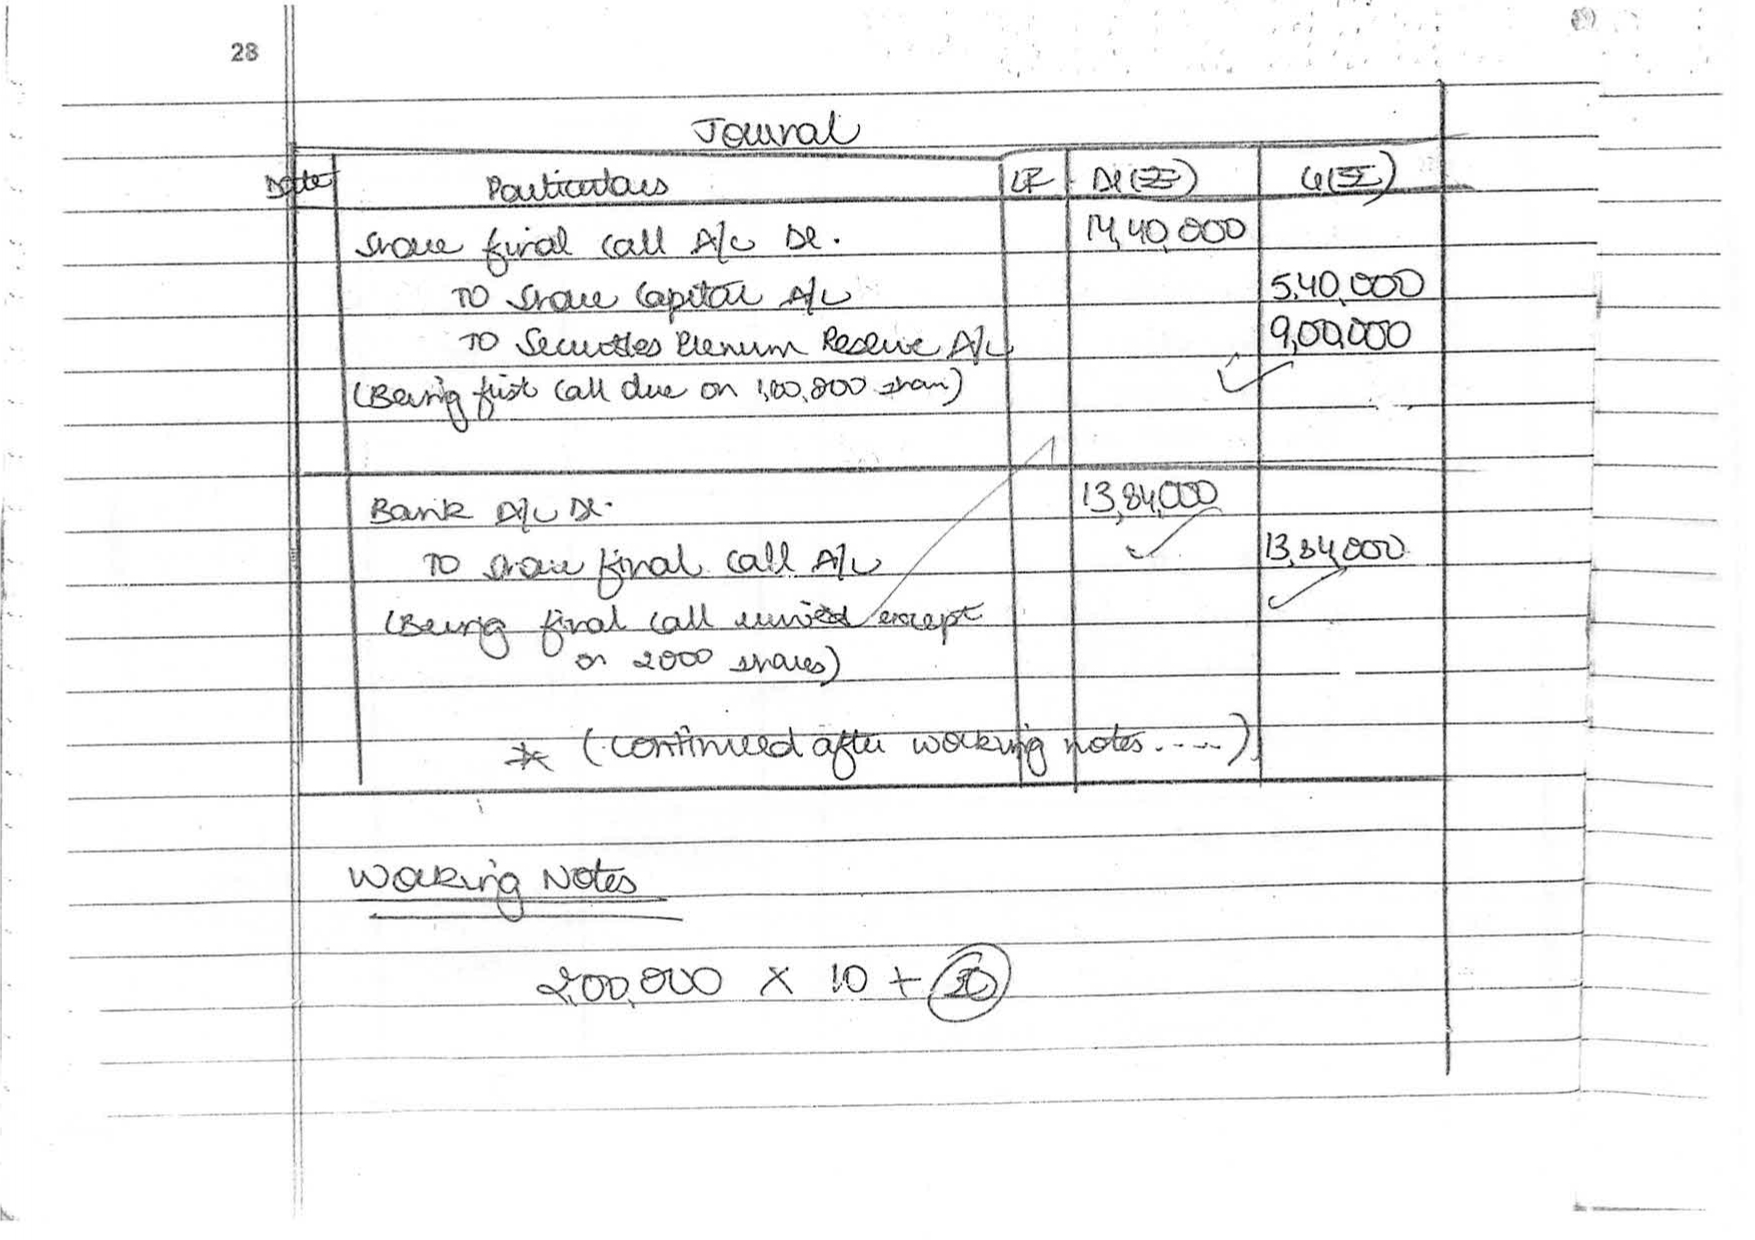 28
Journal
Date Particulars LF Dr(₹) Cr(₹)
Share final call A/c Dr. 14,40,000
To Share Capital A/c 5,40,000
To Securities Premium Reserve A/c 9,00,000
(Being first call due on 1,80,000 share)
Bank A/c Dr. 13,84,000
To Share final call A/c 13,84,000
(Being final call received except
on 2000 shares)
* (continued after working notes.....)
Working Notes
2,00,000 × 10 +